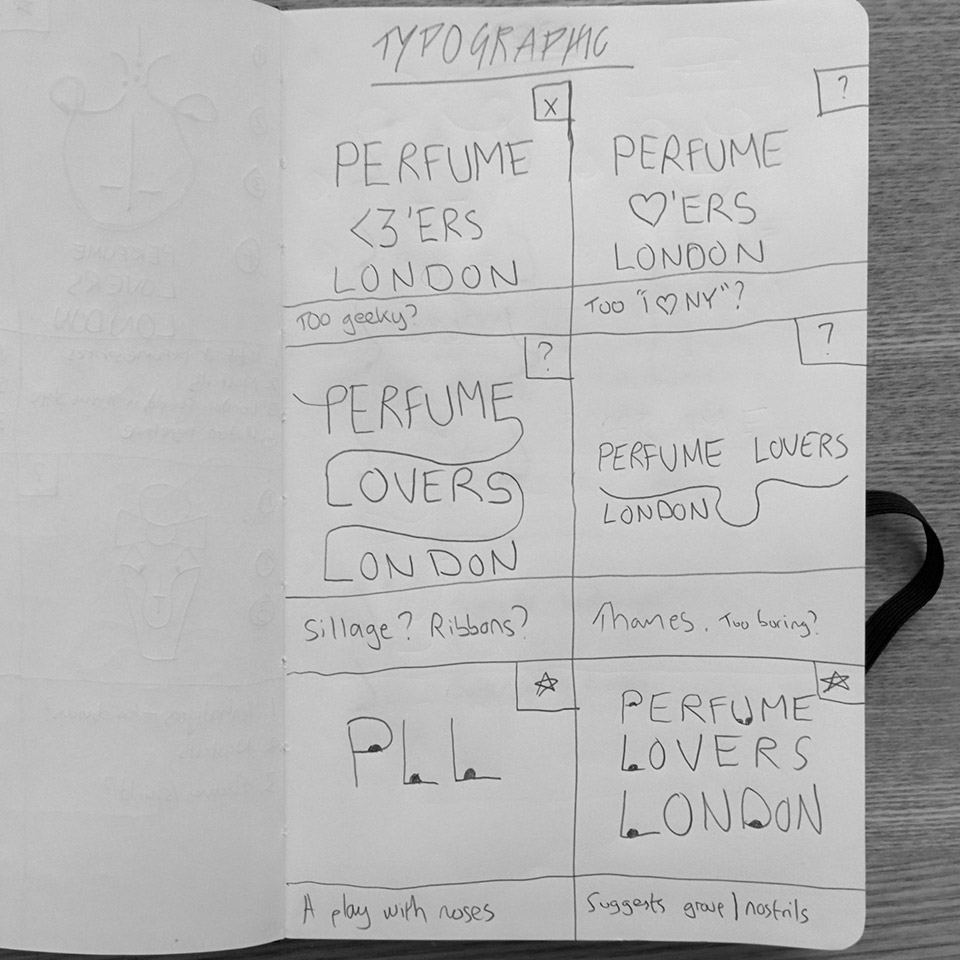 TYPOGRAPHIC
X
PERFUME
<3'ERS
LONDON
TOO geeky?
?
PERFUME
♡'ERS
LONDON
Too "I ♡ NY"?
?
PERFUME
LOVERS
LONDON
Sillage? Ribbons?
?
PERFUME LOVERS
LONDON
Thames. Too boring?
☆
PLL
A play with noses
☆
PERFUME
LOVERS
LONDON
Suggests / nostrils
PERFUME
LOVERS
LONDON